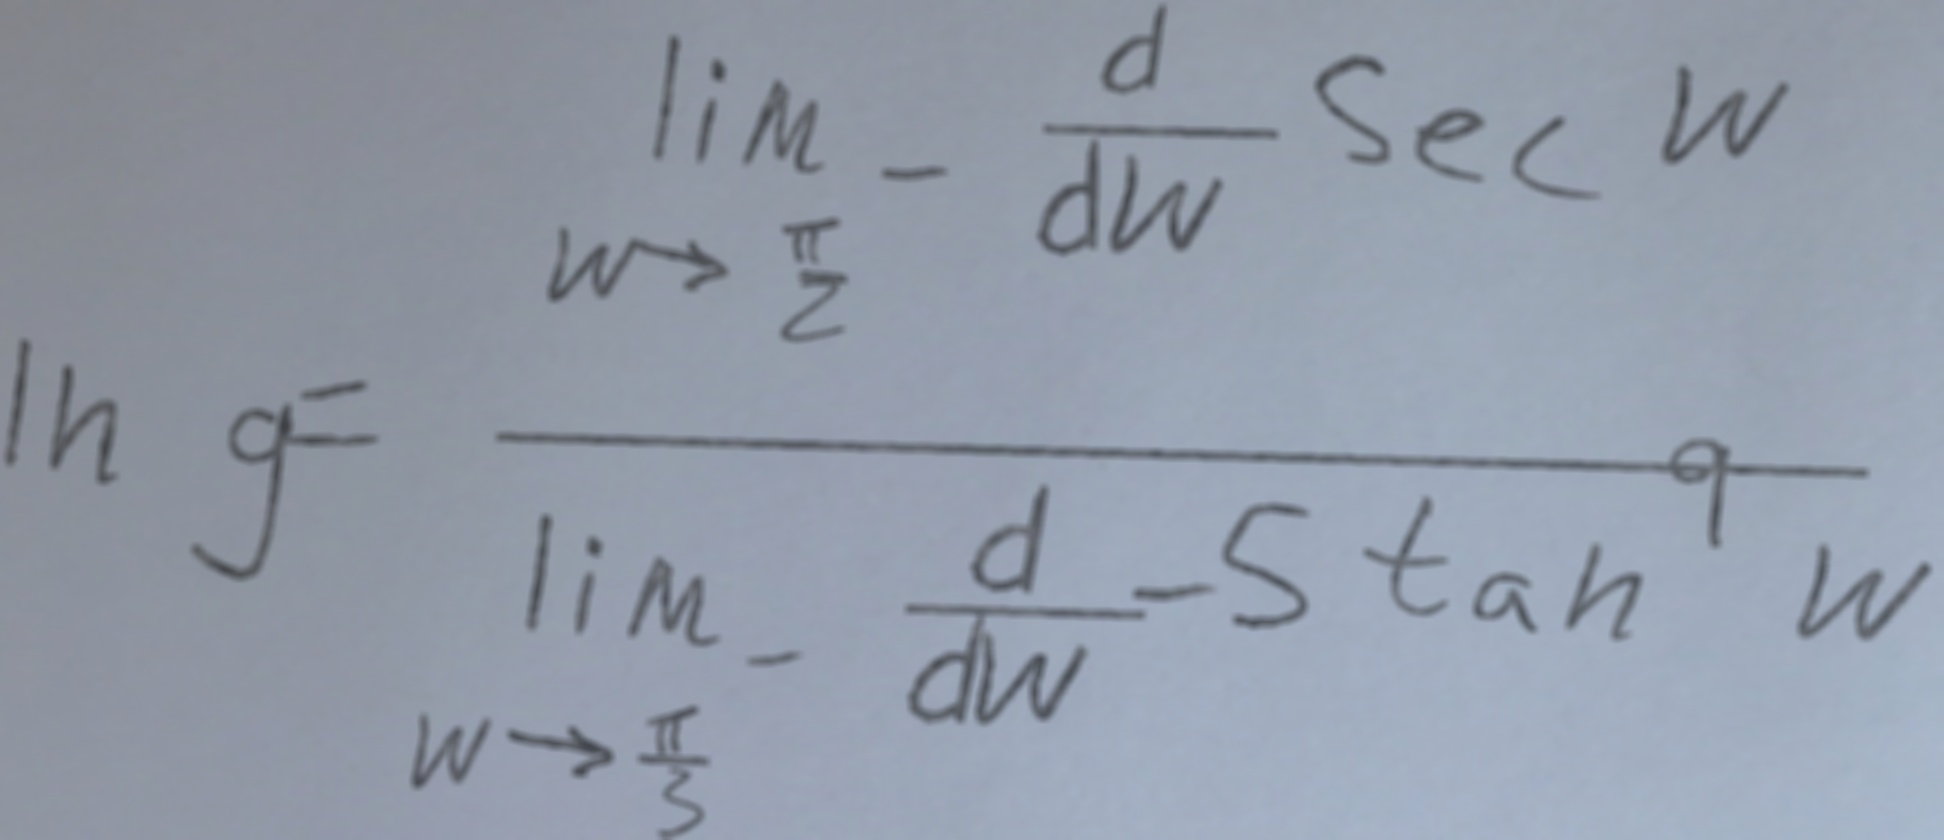 \ln g = \frac{\lim_{w \to \frac{\pi}{2}} - \frac{d}{dw} \sec w}{\lim_{w \to \frac{\pi}{3}} - \frac{d}{dw} - 5 \tan^{9} w}